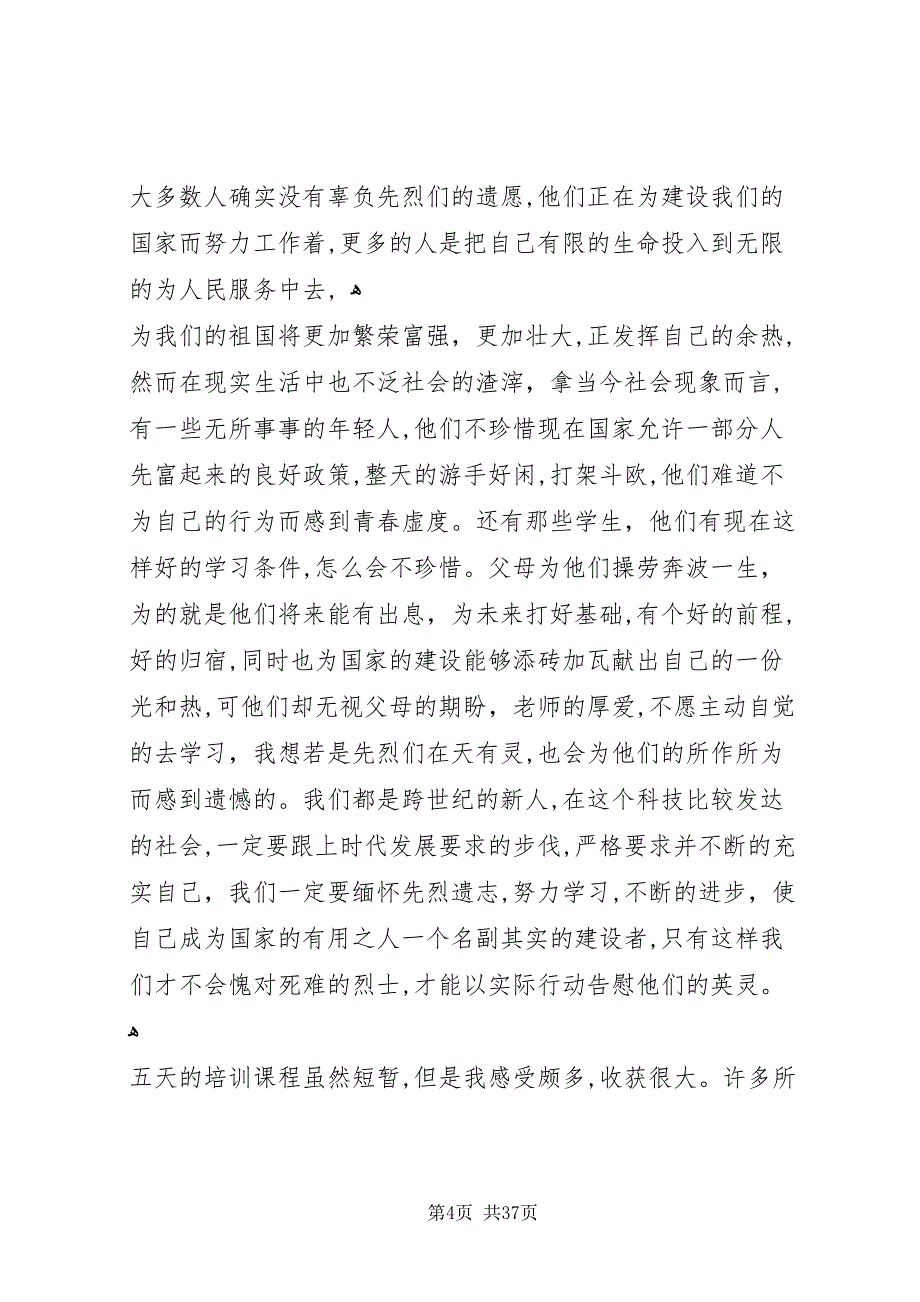 大多数人确实没有辜负先烈们的遗愿,他们正在为建设我们的
国家而努力工作着,更多的人是把自己有限的生命投入到无限
的为人民服务中去, ﻫ
为我们的祖国将更加繁荣富强，更加壮大,正发挥自己的余热,
然而在现实生活中也不泛社会的渣滓，拿当今社会现象而言,
有一些无所事事的年轻人,他们不珍惜现在国家允许一部分人
先富起来的良好政策,整天的游手好闲,打架斗欧,他们难道不
为自己的行为而感到青春虚度。还有那些学生，他们有现在这
样好的学习条件,怎么会不珍惜。父母为他们操劳奔波一生，
为的就是他们将来能有出息，为未来打好基础,有个好的前程,
好的归宿,同时也为国家的建设能够添砖加瓦献出自己的一份
光和热,可他们却无视父母的期盼，老师的厚爱,不愿主动自觉
的去学习，我想若是先烈们在天有灵,也会为他们的所作所为
而感到遗憾的。我们都是跨世纪的新人,在这个科技比较发达
的社会,一定要跟上时代发展要求的步伐,严格要求并不断的充
实自己，我们一定要缅怀先烈遗志,努力学习,不断的进步，使
自己成为国家的有用之人一个名副其实的建设者,只有这样我
们才不会愧对死难的烈士,才能以实际行动告慰他们的英灵。
ﻫ
五天的培训课程虽然短暂,但是我感受颇多,收获很大。许多所
第4页 共37页